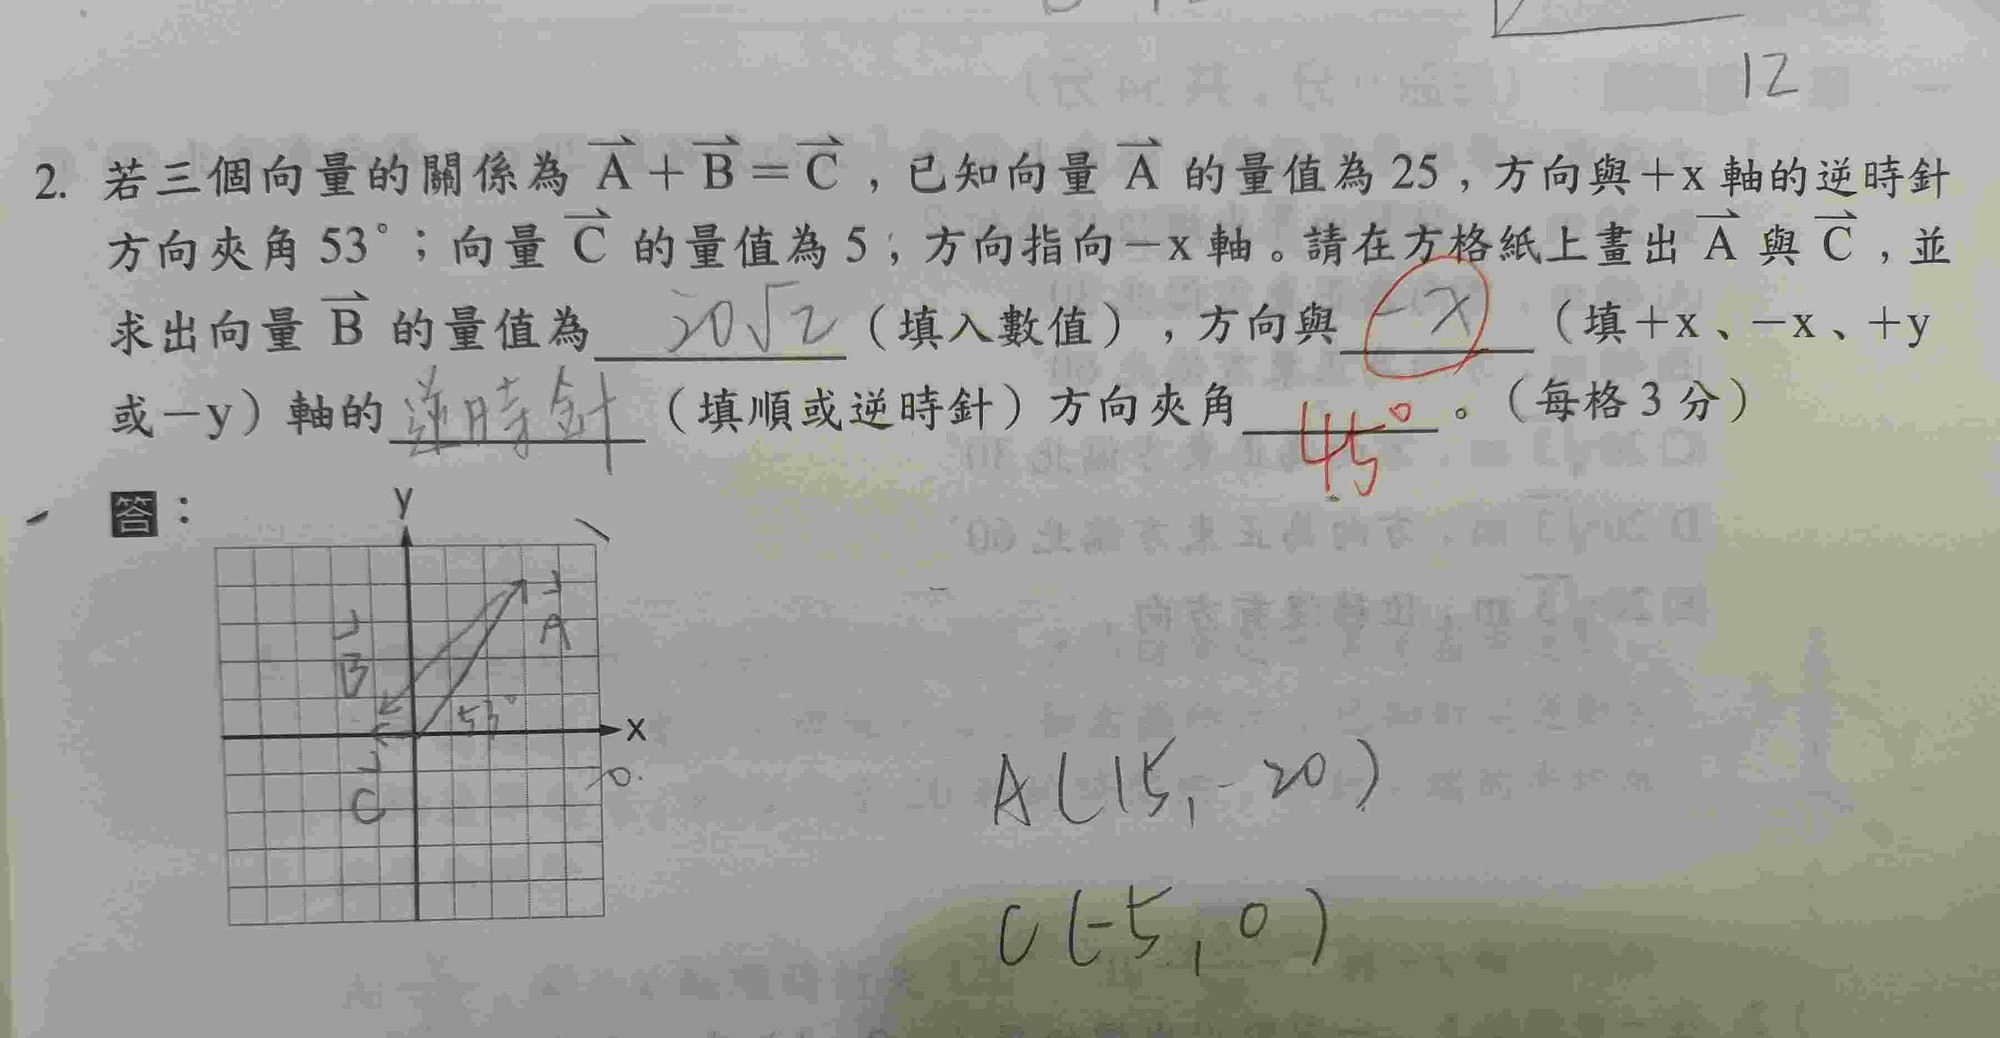 12
2. 若三個向量的關係為 A + B = C ，已知向量 A 的量值為 25，方向與＋x 軸的逆時針
方向夾角 53°；向量 C 的量值為 5；方向指向－x 軸。請在方格紙上畫出 A 與 C ，並
求出向量 B 的量值為 20√2 （填入數值），方向與 -x （填＋x、－x、＋y
或－y）軸的 逆時針 （填順或逆時針）方向夾角 45° 。（每格 3 分）
答：
y
A
B
53°
x
C
A(15,-20)
C(-5,0)